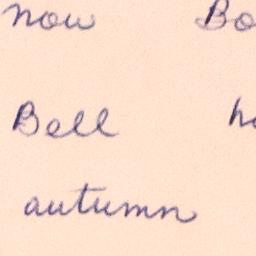 now Bo
Bell h
autumn